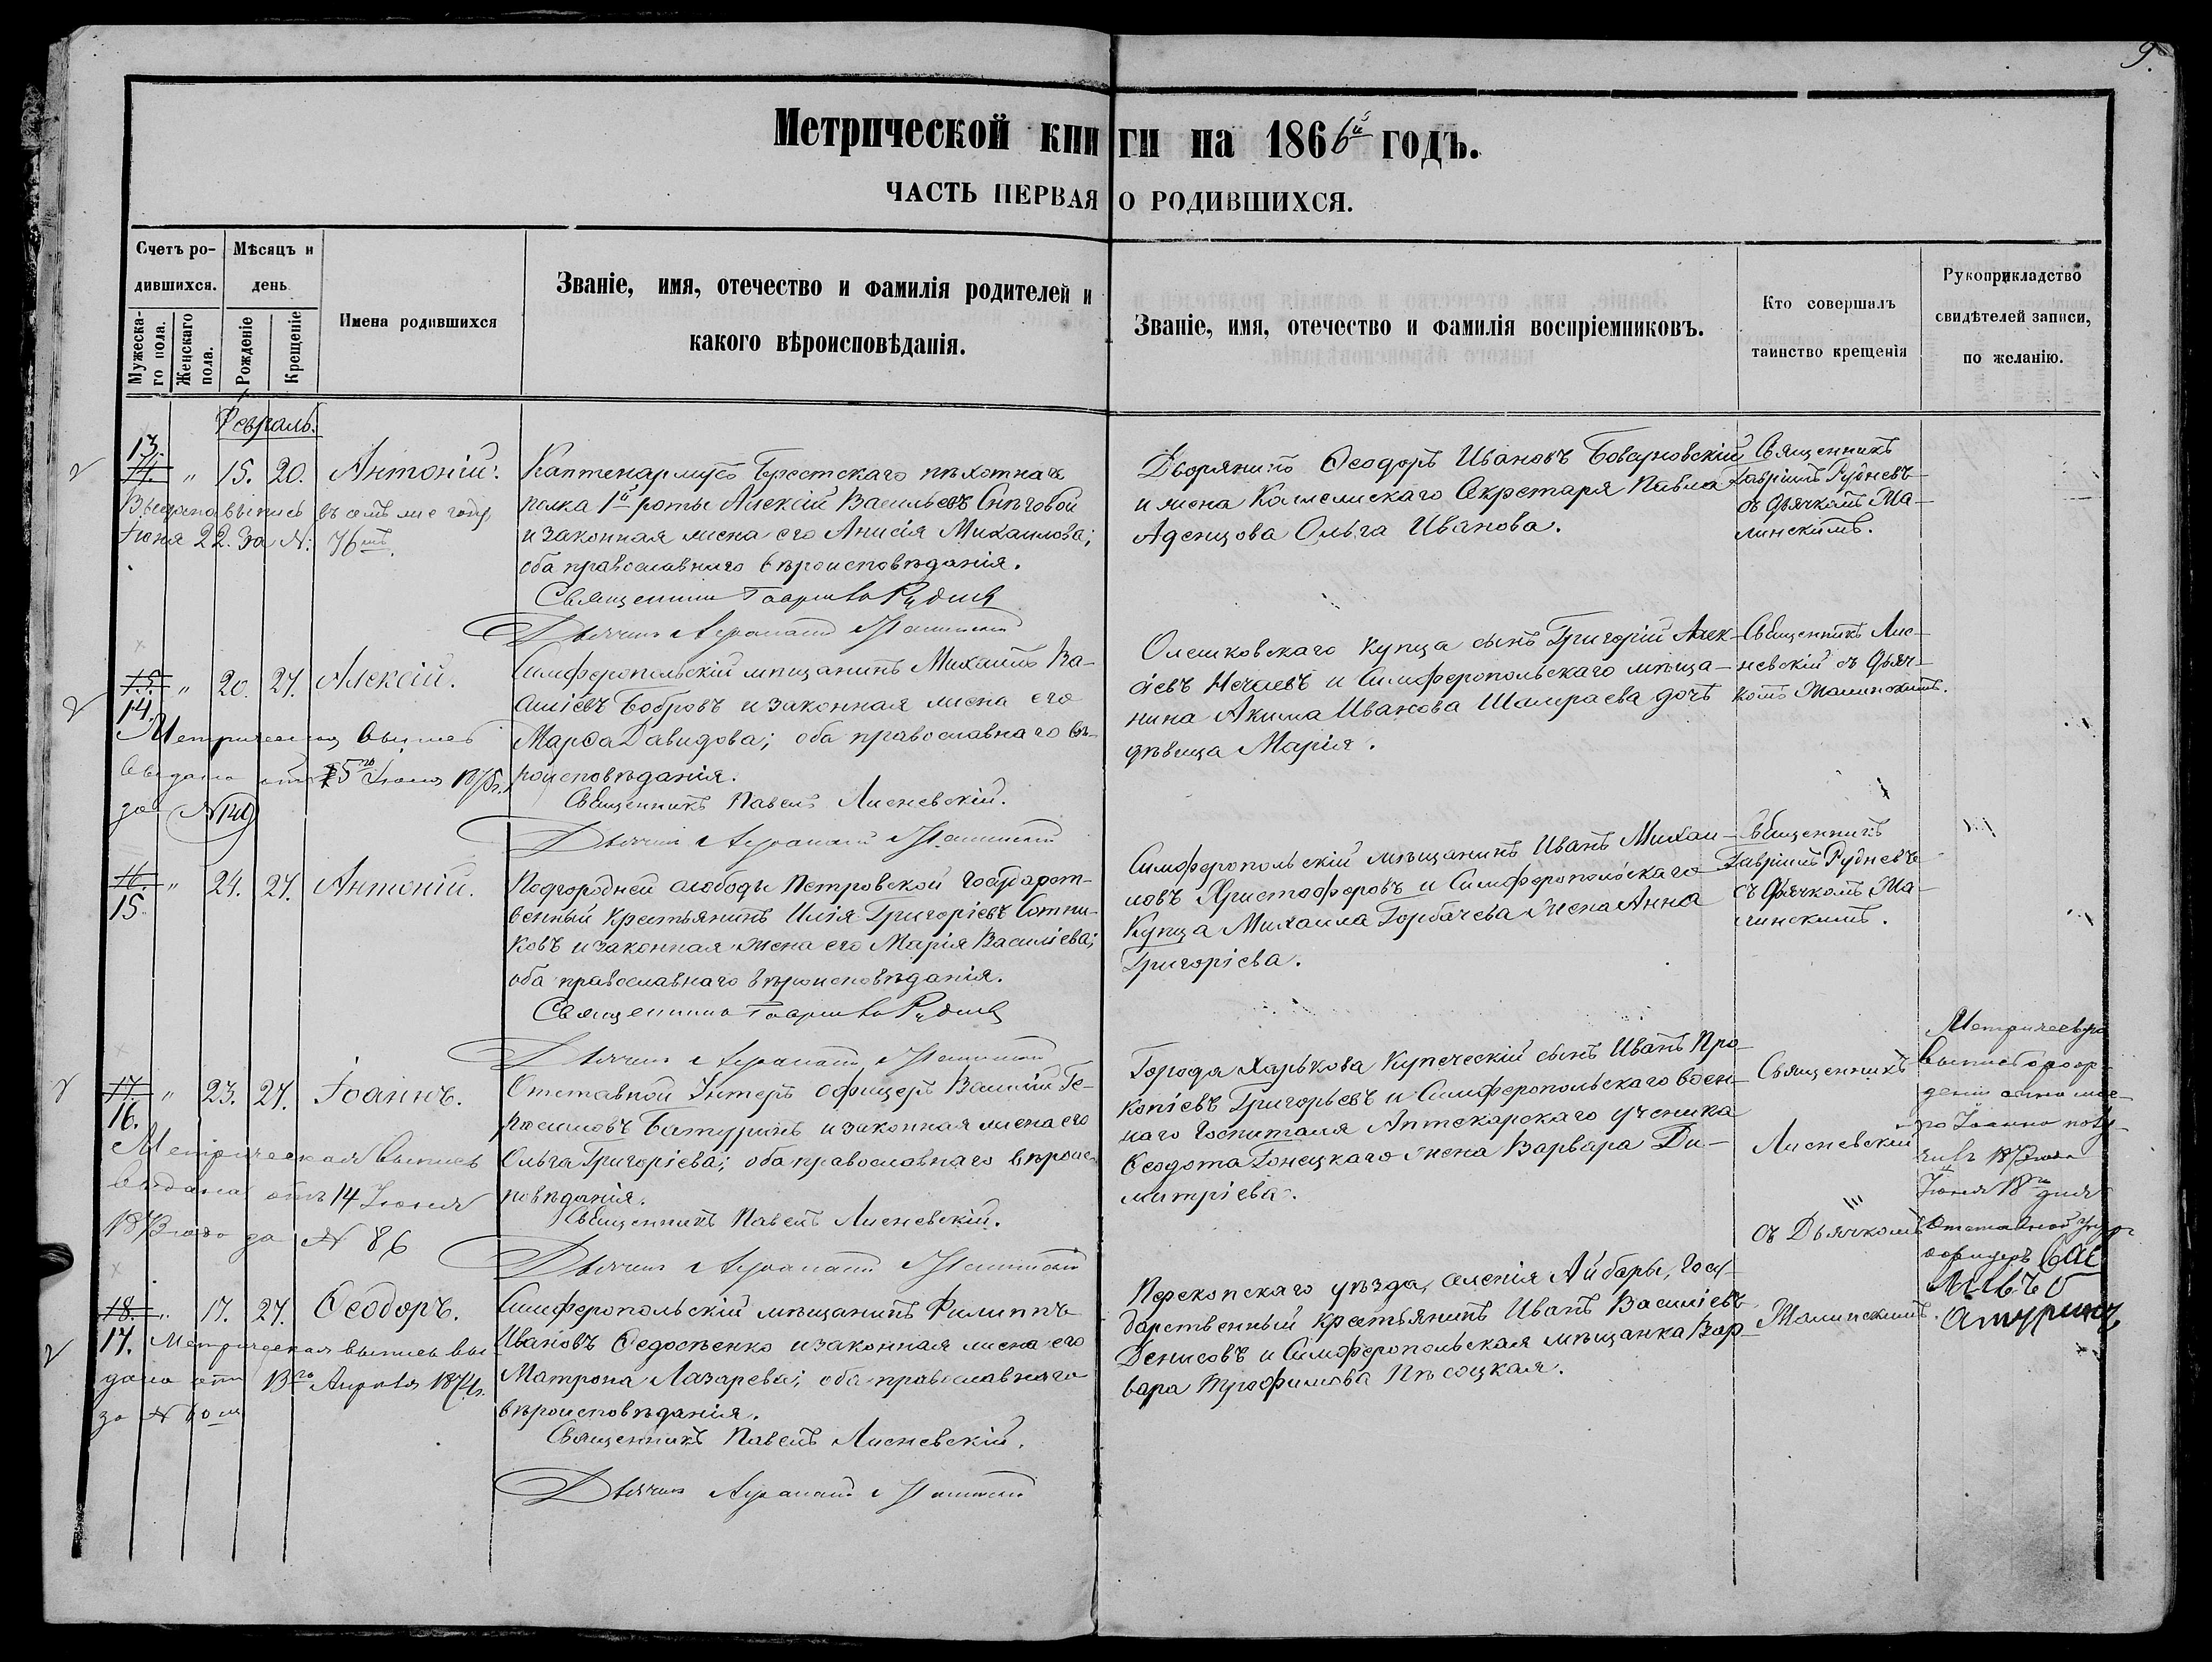 9.
Метрической книги на 1866й годъ.
ЧАСТЬ ПЕРВАЯ О РОДИВШИХСЯ.
Счетъ родившихся.
Мужескаго пола.
Женскаго пола.
Мѣсяцъ и день
Рожденіе
Крещеніе
Имена родившихся
Званіе, имя, отечество и фамилія родителей и
какого вѣроисповѣданія.
Званіе, имя, отечество и фамилія воспріемниковъ.
Кто совершалъ
таинство крещенія
Рукоприкладство
свидѣтелей записи,
по желанію.
Февраль.
13.
14. " 15. 20. Антоній.
Выдана выпись въ томъ же году
Іюня 22. За N: 76мъ.
Каптенармусъ Брестскаго пѣхотнаго
полка 1й роты Алексій Васильевъ Снѣговой
и законная жена его Анисія Михаилова;
оба православнаго вѣроисповѣданія.
Священникъ Гавріилъ Рудневъ
Дьячокъ
Дворянинъ Ѳеодоръ Ивановъ
и жена Коллежскаго Секретаря Павла
Аденцова Ольга Иванова.
Священникъ
Гавріилъ Рудневъ
съ Дьячкомъ Ма-
линскимъ.
15. " 20. 27. Алексій.
14.
Метрическая выпись
выдана отъ 5го Іюня
за N 140
Симферопольскій мѣщанинъ Михаилъ Ва-
силіевъ Бобровъ и законная жена его
Марѳа Давидова; оба православнаго вѣ-
роисповѣданія.
Священникъ Павелъ Лисневскій.
Дьячокъ
Олешковскаго купца сынъ Григорій Алек-
сіевъ Нечаевъ и Симферопольскаго мѣща-
нина Акима Иванова Шамраева дочь
дѣвица Марія.
Священникъ Лис-
невскій съ Дьяч-
комъ Малинскимъ.
16. " 24. 27. Антоній.
15.
Подгородней слободы Петровской государст-
венный крестьянинъ Илія Григоріевъ Сотни-
ковъ и законная жена его Марія Василіева;
оба православнаго вѣроисповѣданія.
Священникъ Гавріилъ Рудневъ
Дьячокъ
Симферопольскій мѣщанинъ Иванъ Михаи-
ловъ Христофоровъ и Симферопольскаго
Купца Михаила Горбачева жена Анна
Григоріева.
Священникъ
Гавріилъ Рудневъ
съ Дьячкомъ Ма-
линскимъ.
17. " 23. 27. Іоаннъ.
16.
Метрическая выпись
выдана отъ 14 Іюня
1873 года за N 86
Отставной Унтеръ офицеръ Василій Ге-
расимовъ Батуринъ и законная жена его
Ольга Григоріева; оба православнаго вѣроис-
повѣданія.
Священникъ Павелъ Лисневскій.
Дьячокъ
Города Харькова Купеческій сынъ Иванъ Про-
копіевъ Григорьевъ и Симферопольскаго воен-
наго Госпиталя Аптекарскаго ученика
Ѳеодота Донецкаго жена Варвара Ди-
митріева.
Священникъ
Лисневскій
съ Дьячкомъ
Малинскимъ.
Метрическую
выпись о рож-
деніи сына мое-
го Іоанна полу-
чилъ 1873 года
Іюня 18го дня
Отставной Унтеръ
офицеръ Васи
лій Б
атуринъ
18. " 17. 27. Ѳеодоръ.
17. Метрическая выпись вы
дана отъ 13го Апрѣля 1874г.
за N 60мъ
Симферопольскій мѣщанинъ Филиппъ
Ивановъ Ѳедосѣенко и законная жена его
Матрона Лазарева; оба православнаго
вѣроисповѣданія.
Священникъ Павелъ Лисневскій.
Дьячокъ
Перекопскаго уѣзда, селенія Айбары, госу-
дарственный крестьянинъ Иванъ Василіевъ
Денисовъ и Симферопольская мѣщанка Вар-
вара Трофимова Пѣсоцкая.